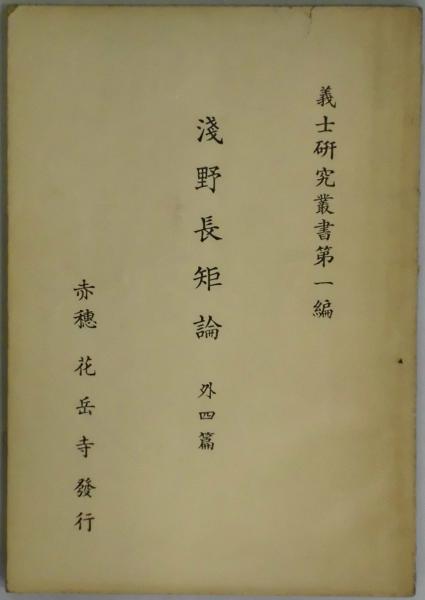 義士研究叢書第一編
淺野長矩論 外四篇
赤穗 花岳寺發行